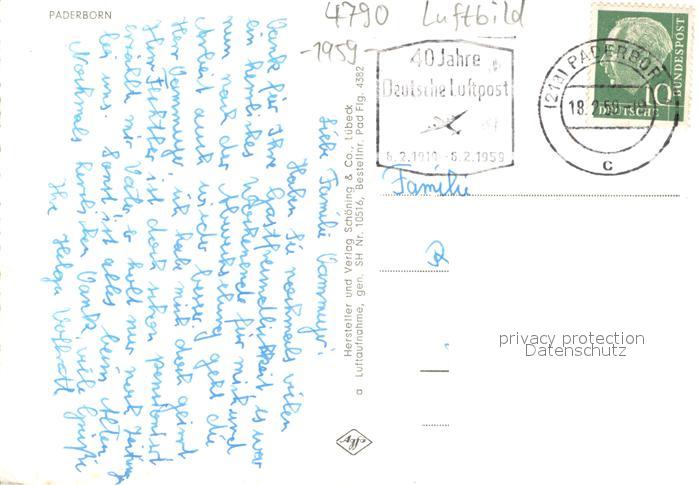 PADERBORN
4790 Luftbild
-1959-
40 Jahre
Deutsche Luftpost
6.2.1919 - 6.2.1959
(21a) PADERBORN
18.2.59
c
10
DEUTSCHE
BUNDESPOST
Familie
privacy protection
Datenschutz
Hersteller und Verlag Schöning & Co., Lübeck
a Luftaufnahme, gen. SH Nr. 10516, Bestellnr. Pad Flg. 4382
Liebe Familie
Haben Sie nochmals vielen
Dank für Ihre Gastfreundlichkeit es war
ein herrliches Wochenende für mich und
nun nach der Abwechslung geht die
Arbeit auch wieder besser.
Herr ist habe mich doch geirrt
Herr ist doch schon pensioniert
erzählt mir Vater, er holt nur noch Zeitung
bei uns. Sonst ist alles beim Alten.
Nochmals herzlichen Dank, viele Grüße
Ihr Helga